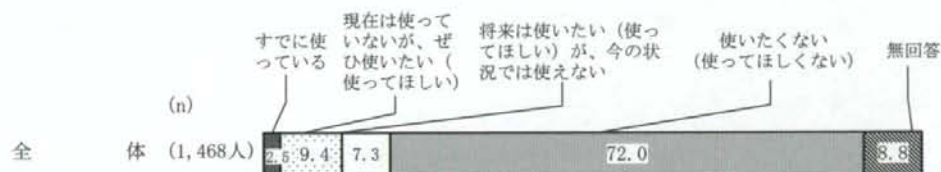 すでに使
っている
現在は使って
いないが、ぜ
ひ使いたい(
使ってほしい)
将来は使いたい(使っ
てほしい)が、今の状
況では使えない
使いたくない
(使ってほしくない)
無回答
(n)
全体 (1,468人) 2.5 9.4 7.3 72.0 8.8